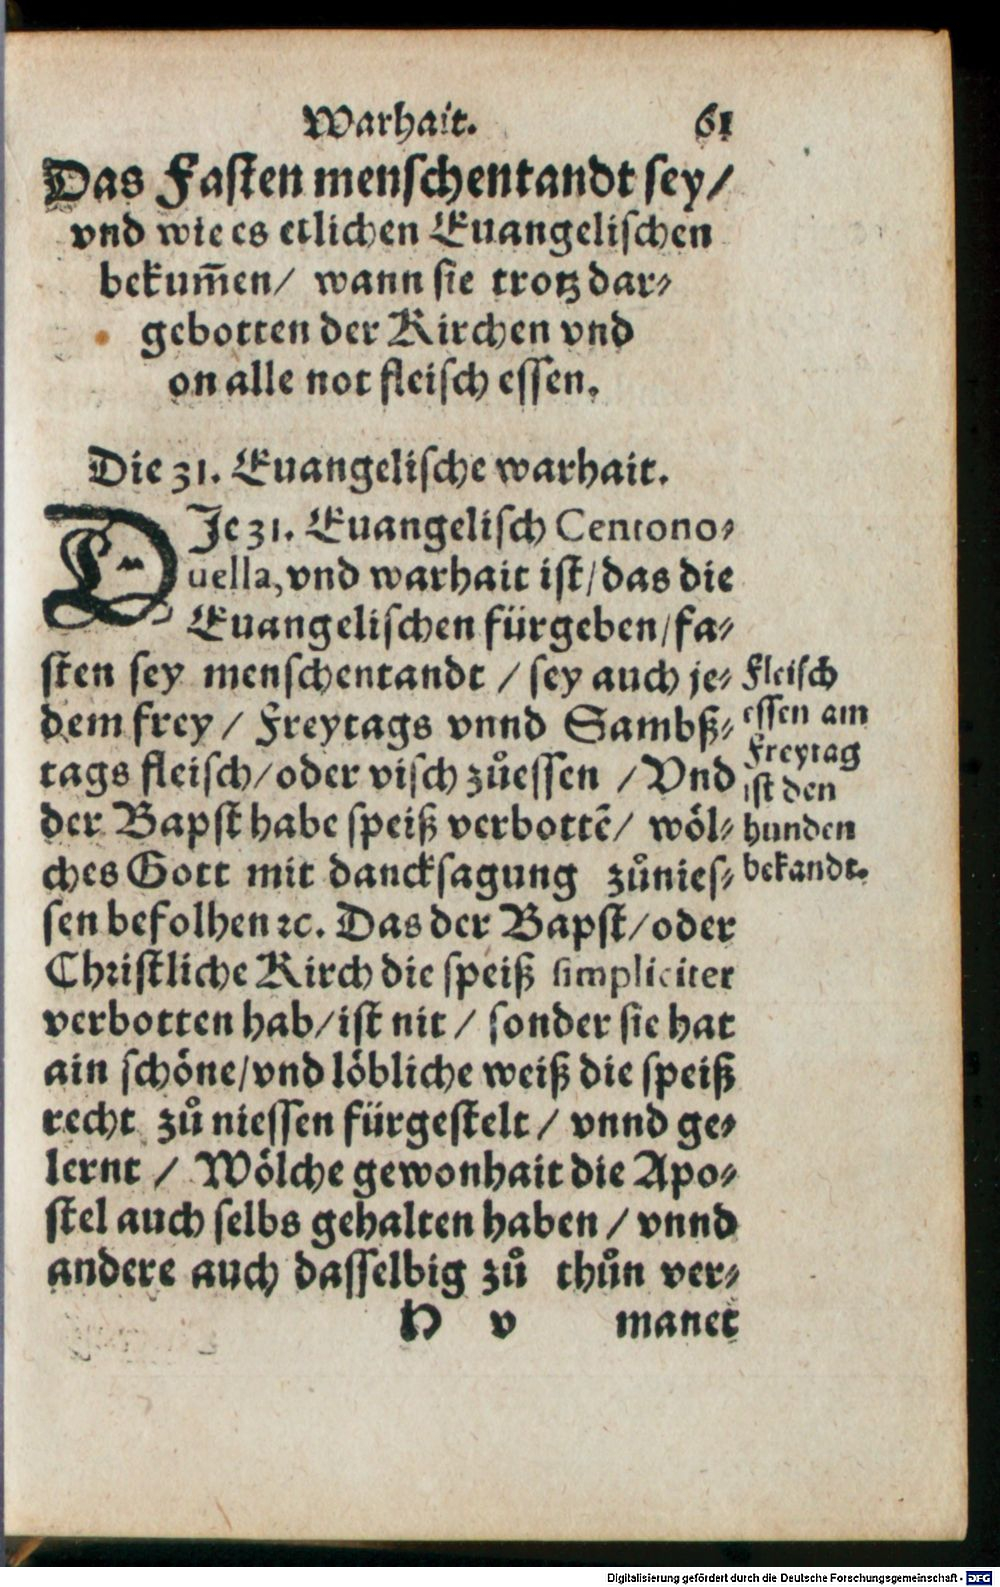 Warhait. 61
Das Fasten menschentandt sey/
vnd wie es etlichen Euangelischen
bekum̄en/ wann sie trotz dar⸗
gebotten der Kirchen vnd
on alle not fleisch essen.
Die 31. Euangelische warhait.
DJe 31. Euangelisch Centono⸗
uella, vnd warhait ist/das die
Euangelischen fürgeben/fa⸗
sten sey menschentandt / sey auch je⸗
dem frey / Freytags vnnd Sambß⸗
tags fleisch/oder visch zůessen / Vnd
der Bapst habe speiß verbottē/ wöl⸗
ches Gott mit dancksagung zůnies⸗
sen befolhen ꝛc. Das der Bapst/oder
Christliche Kirch die speiß simpliciter
verbotten hab/ist nit / sonder sie hat
ain schöne/vnd löbliche weiß die speiß
recht zů niessen fürgestelt / vnnd ge⸗
lernt / Wölche gewonhait die Apo⸗
stel auch selbs gehalten haben / vnnd
andere auch dasselbig zů thůn ver⸗
H v manet
Fleisch
essen am
Freytag
ist den
hunden
bekandt.
Digitalisierung gefördert durch die Deutsche Forschungsgemeinschaft - DFG